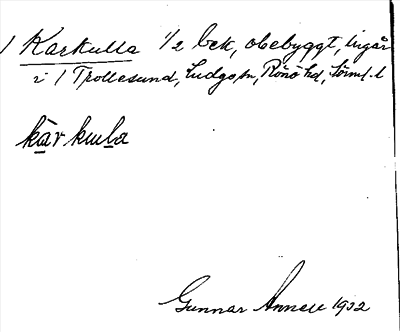 1 Karkulla 1/2 bck, obebyggt, ingår
i 1 Trollesund, Ludgo sn, Rönö hd, Sörml. l
kàr kulla
Gunnar Anneu 1932